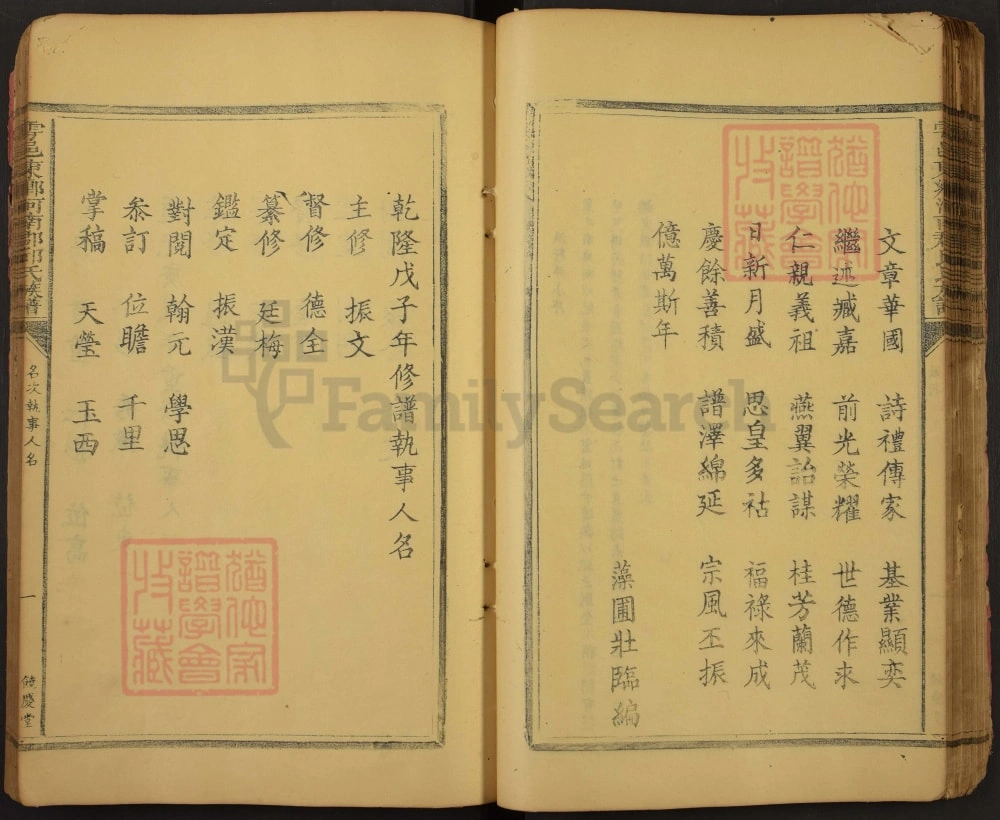 文章華國　詩禮傳家　基業顯奕
繼述臧嘉　前光榮耀　世德作求
仁親義祖　燕翼詒謀　桂芳蘭茂
日新月盛　思皇多祜　福祿來成
慶餘善積　譜澤綿延　宗風丕振
億萬斯年
藻圃壯臨編
乾隆戊子年修譜執事人名
主修　振文
督修　德全
纂修　廷梅
鑑定　振漢
對閱　翰元　學思
叅訂　位瞻　千里
掌稿　天瑩　玉西
名次執事人名
一
饒慶堂
FamilySearch
譜學會
收藏
譜學會
收藏